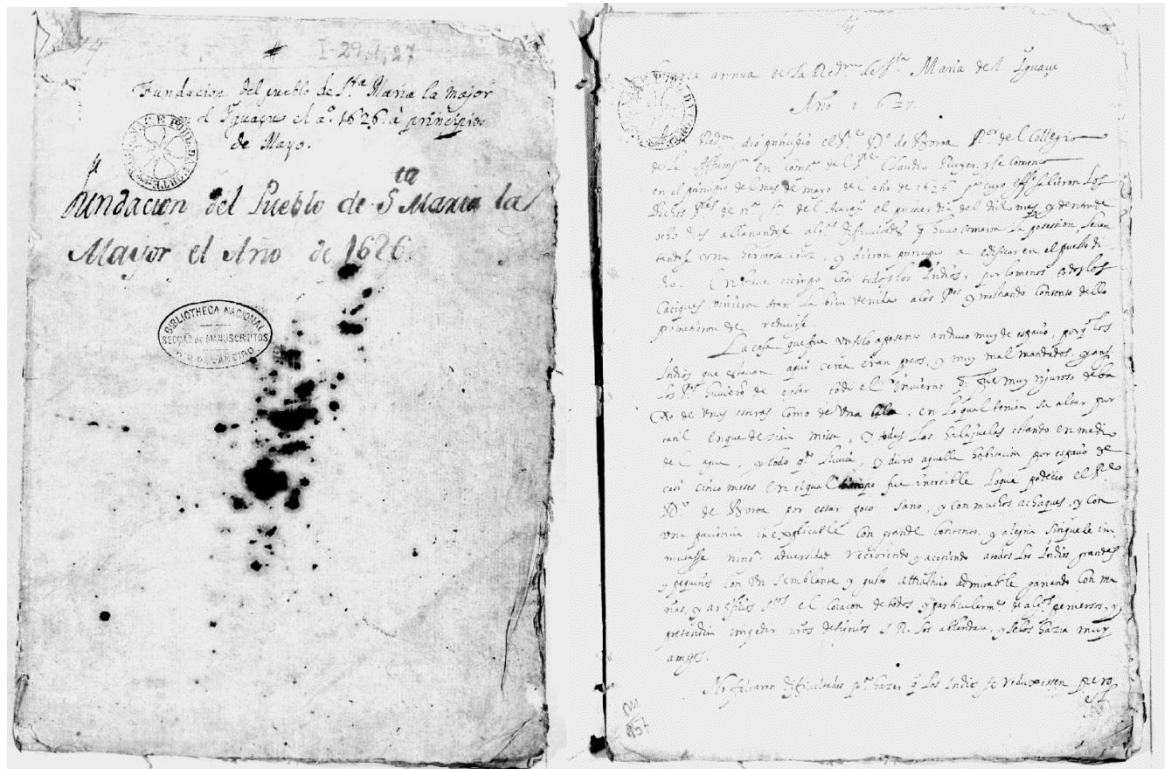 I-29,1,27
Fundacion del pueblo de Sta Maria la major
el Iguaçu el aº. 1626. à principio
de Mayo.
Fundacion del Pueblo de Sta Maria la
Mayor el Año de 1626.
BIBLIOTHECA NACIONAL
SECÇÃO de MANUSCRIPTOS
RIO DE JANEIRO
annua de la Redon de Sta Maria del Iguaçu
Año 1627.
dió principio el Pe. Do de Boroa Ror del Collegio
de la Assumpn en compa del Pe Claudio Ruyer, y se comenco
en el principio del mes de mayo del año de 1626 pa cuyo salieron los
dichos Pes de na sa del Acaray el primer dia del dicho mes, y dentro de
ocho dias allanandose algas dificultades q huvo tomaron la posession levan
tandose una hermosa cruz, y dieron principio a edificar en el puesto di
cho. En breve tiempo casi todos los Indios, por lo menos todos los
Caciques vinieron a dar la bien venida a los Pes y mostrando contento dello
prometieron de reducirse.
La casa que fue un solo aposento anduvo muy de espacio, porq los
Indios que estavan aqui cerca eran pocos, y muy mal mandados, y ansi
los Pes huvierõ de estar todo el invierno q fue muy riguroso deba
xo de unas esteras como de una, en lo qual tenian su altar por
tatil en que dezian missa, y todas las halajuelas estando en medio
del agua, y lodo qdo llovia, y duro aquella habitacion por espacio de
casi cinco meses en el qual tiempo fue increible lo que padecio el Pe
Do de Boroa por estar poco sano, y con muchos achaques, y con
una paciencia inexplicable con grande contento, y alegria sin que le in
mutasse ninga adversidad recibiendo y acogiendo a todos los Indios grandes
y pequeños con un semblante, y gusto admirable ganando con ma
ñas, y artificios stos el coraçon de todos y particularmte de algos
pretendian impedir nros desinios S R. los ablandava, y se los hazia muy
amigos.
No faltaron dificultades pa hazer q los Indios se reduxessen pero